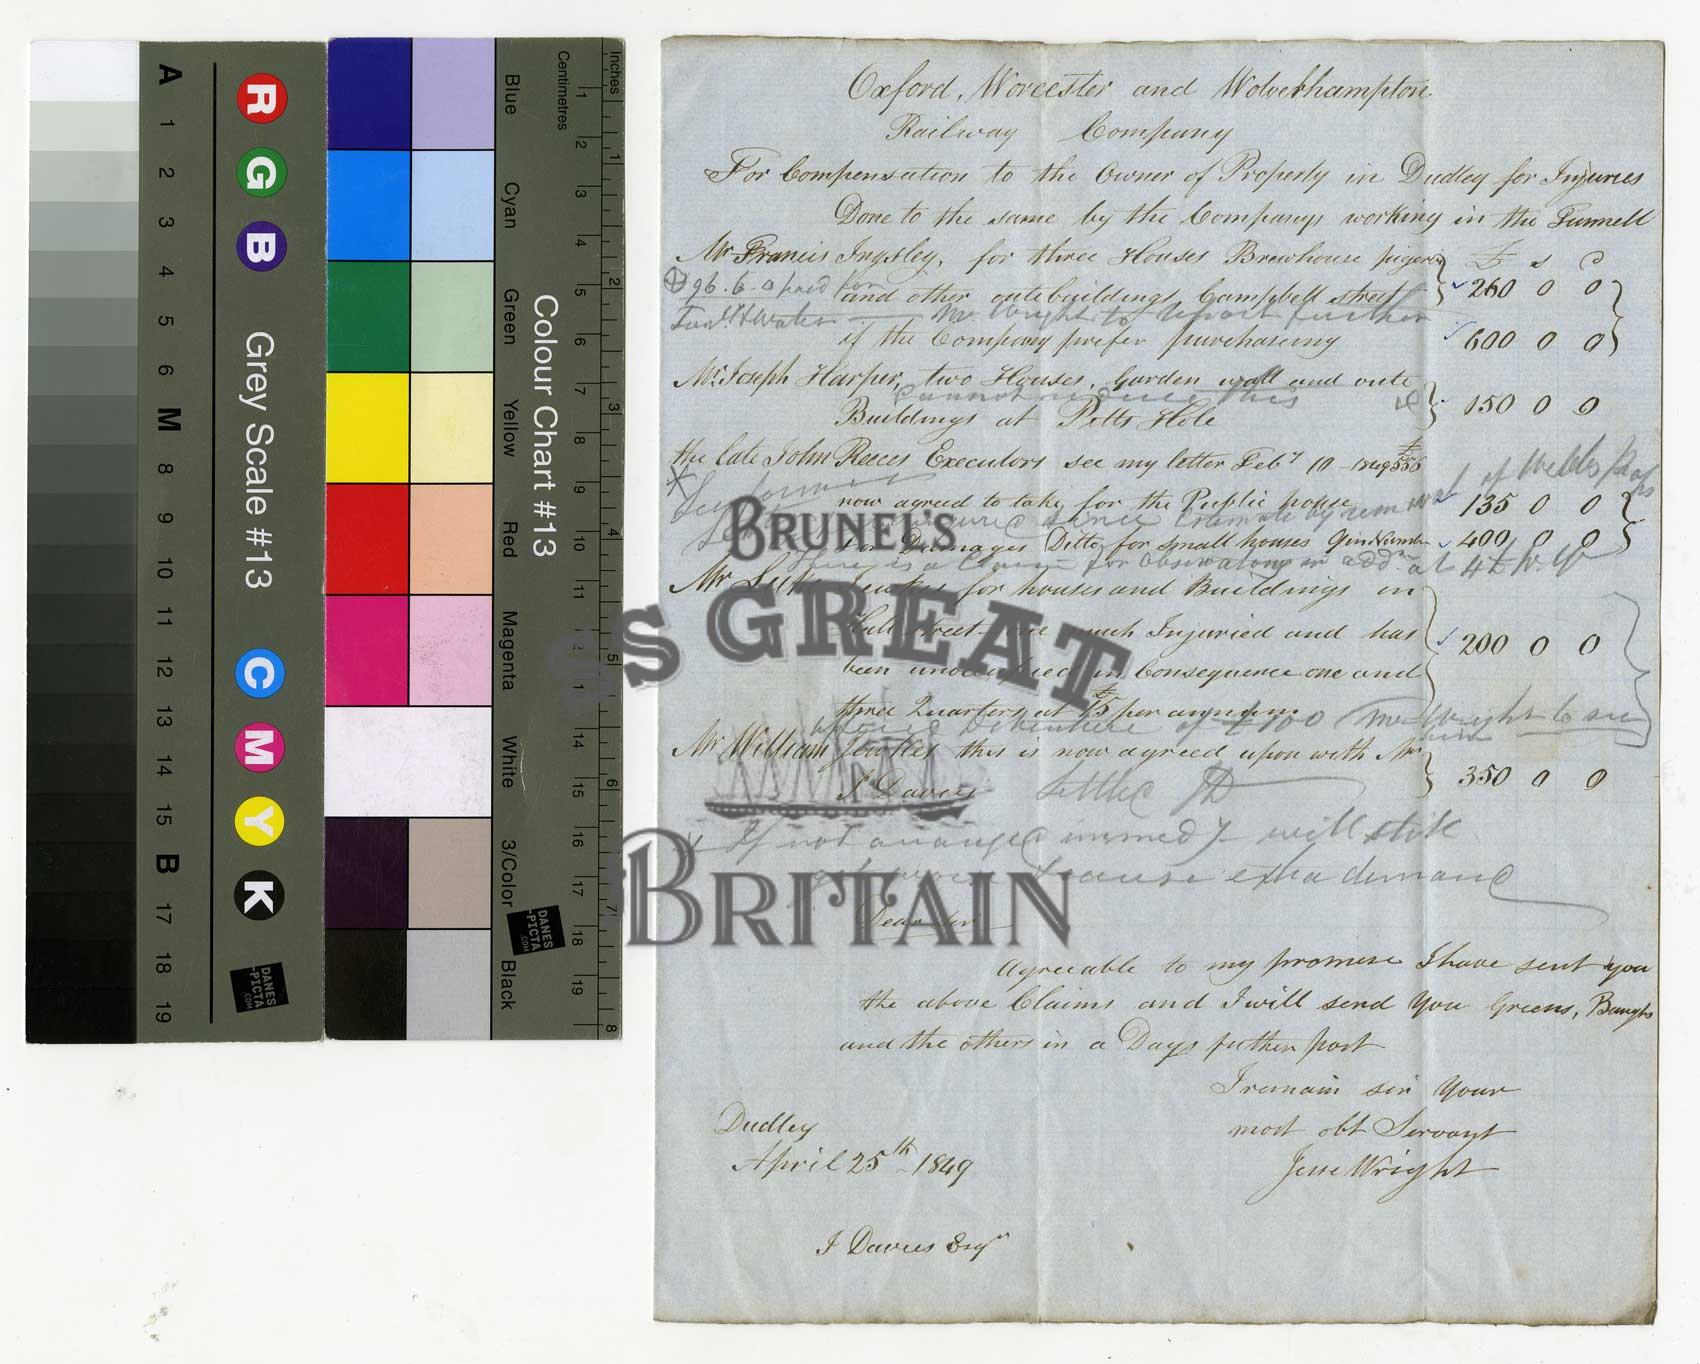 A 1 2 3 4 5 6 M 8 9 10 11 12 13 14 15 B 17 18 19
R G B
Grey Scale #13
C M Y K
DANES
-PICTA
.COM
Blue
Cyan
Green
Yellow
Red
Magenta
White
3/Color
Black
Colour Chart #13
DANES
-PICTA
.COM
Centimetres
1 2 3 4 5 6 7 8 9 10 11 12 13 14 15 16 17 18 19
Inches
1 2 3 4 5 6 7 8
Oxford, Worcester and Wolverhampton
Railway Company
For Compensation to the Owner of Property in Dudley for Injuries
Done to the same by the Companys working in the Tunnell
Mr Francis Ingsley, for three Houses Brewhouse pigerie £ s D
96.6.0 paid for
and other outebuildings Campbell street 260 0 0
Mr Wright to report further
if the Company prefer purchaseing 600 0 0
Mr Joseph Harper, two Houses, Garden wall and oute
Cannot reduce this
Buildings at Pitts Hole 150 0 0
the late John Reeces Executors see my letter Feby 10 - 1849 £
now agreed to take for the Public house 135 0 0
since Estimate by removal of Webbs
For Damages Ditto for small houses 400 0 0
There is a Claim for observations in addn at
Mr Luke for houses and Buildings in
Hall street one much Injuried and has 200 0 0
been unoccupied in Consequence one and
three Quarters at £ per annum
£100 Mr Wright to see
him
Mr William this is now agreed upon with Mr
J Davies 350 0 0
Settled JD
If not arranged immedy will still
extra demand
Dear Sir
Agreeable to my promise I have sent you
the above Claims and I will send you Greens, Baughs
and the others in a Days futher post
I remain sir Your
most obt Servant
Jesse Wright
Dudley
April 25th 1849
J Davies Esqr
BRUNEL'S
SS GREAT
BRITAIN